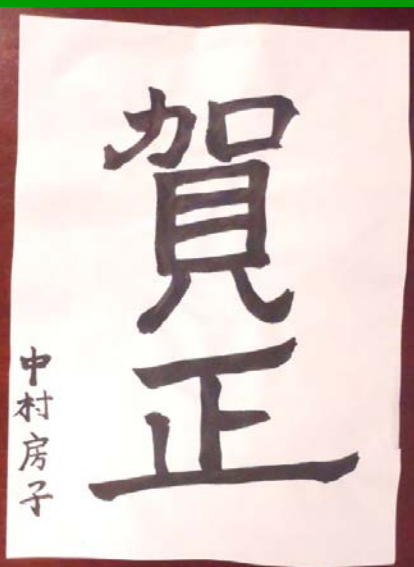 賀正
中村房子